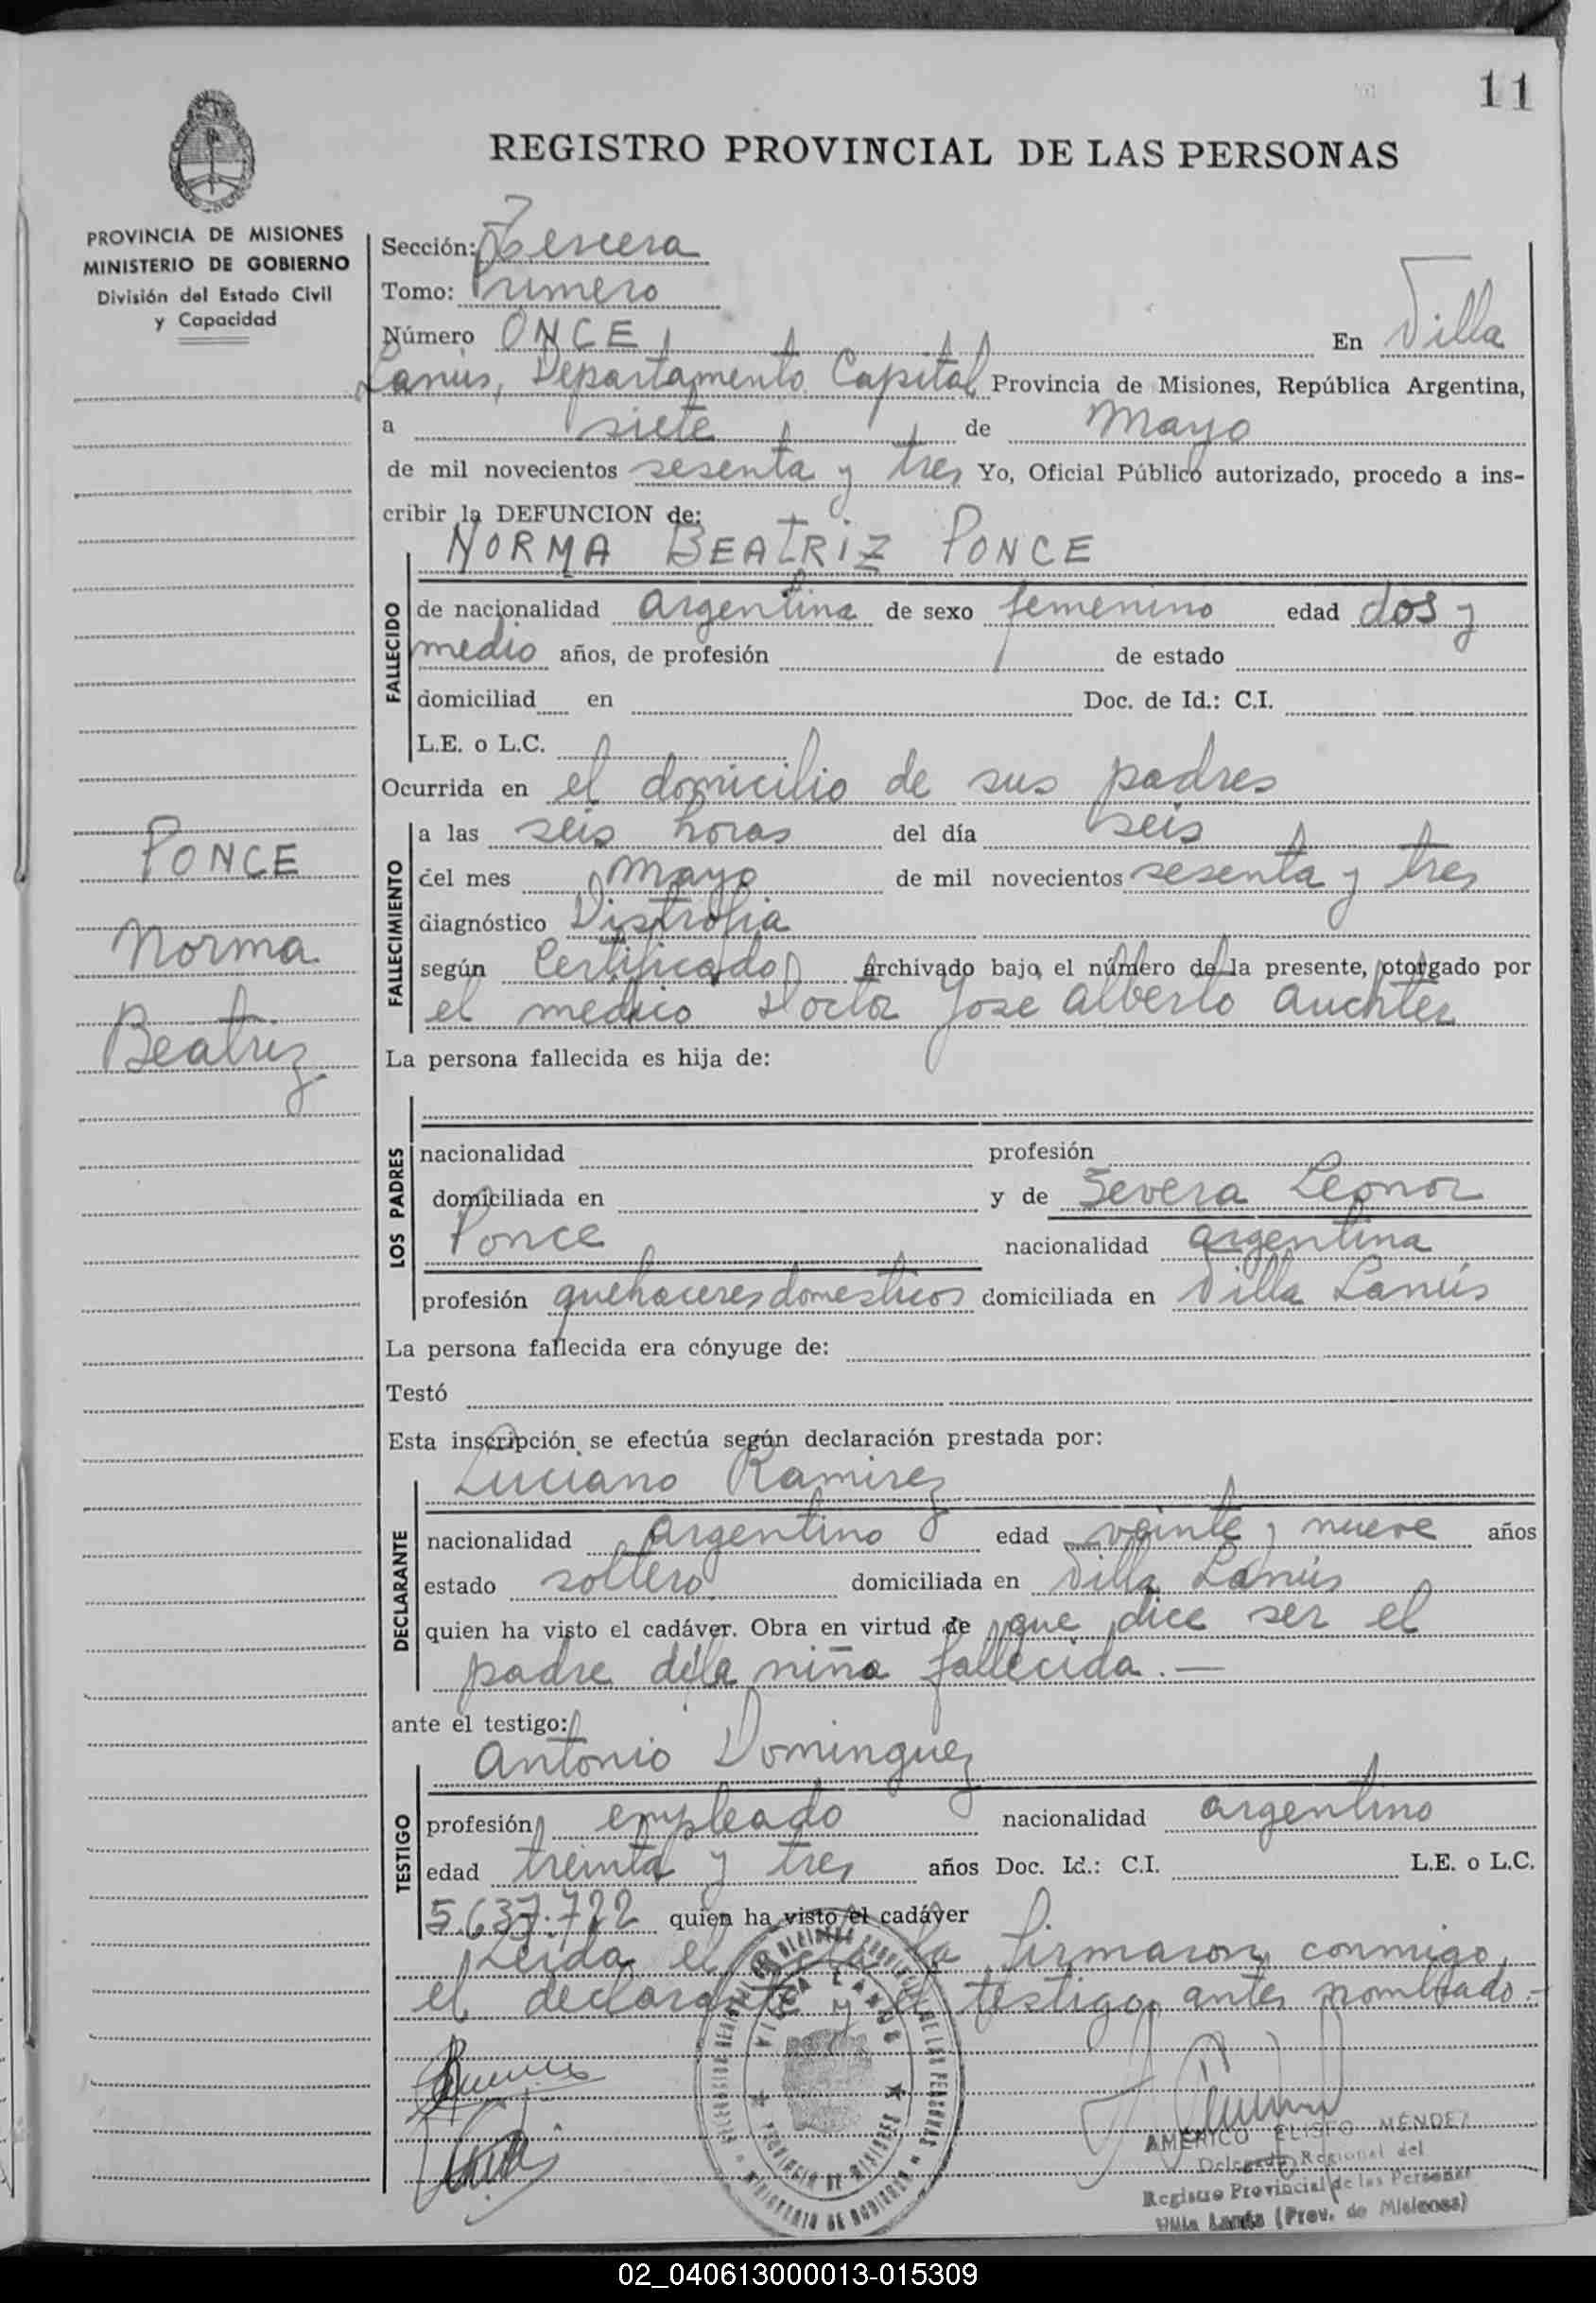 11
REGISTRO PROVINCIAL DE LAS PERSONAS
PROVINCIA DE MISIONES
MINISTERIO DE GOBIERNO
División del Estado Civil
y Capacidad
PONCE
Norma
Beatriz
Sección: Tercera
Tomo: Primero
Número ONCE En Villa
Lanus, Departamento Capital Provincia de Misiones, República Argentina,
a siete de Mayo
de mil novecientos sesenta y tres Yo, Oficial Público autorizado, procedo a ins-
cribir la DEFUNCION de:
NORMA BEATRIZ PONCE
FALLECIDO
de nacionalidad argentina de sexo femenino edad dos y
medio años, de profesión de estado
domiciliad en Doc. de Id.: C.I.
L.E. o L.C.
Ocurrida en el domicilio de sus padres
FALLECIMIENTO
a las seis horas del día seis
del mes mayo de mil novecientos sesenta y tres
diagnóstico Distrofia
según Certificado archivado bajo el número de la presente, otorgado por
el medico Doctor Jose Alberto Auchter
La persona fallecida es hija de:
LOS PADRES
nacionalidad profesión
domiciliada en y de Severa Leonor
Ponce nacionalidad argentina
profesión quehaceres domesticos domiciliada en Villa Lanús
La persona fallecida era cónyuge de:
Testó
Esta inscripción se efectúa según declaración prestada por:
Luciano Ramirez
DECLARANTE
nacionalidad argentino edad veinte y nueve años
estado soltero domiciliada en Villa Lanús
quien ha visto el cadáver. Obra en virtud de que dice ser el
padre de la niña fallecida.—
ante el testigo:
Antonio Dominguez
TESTIGO
profesión empleado nacionalidad argentino
edad treinta y tres años Doc. Id.: C.I. L.E. o L.C.
5.637.722 quien ha visto el cadáver
Leida el acta la firmaron conmigo
el declarante y el testigo antes nombrado.-
VILLA LANUS
PROVINCIA DE MISIONES
MINISTERIO DE GOBIERNO
AMÉRICO ELISEO MÉNDEZ
Delegado Regional del
Registro Provincial de las Personas
Villa Lanús (Prov. de Misiones)
02_040613000013-015309